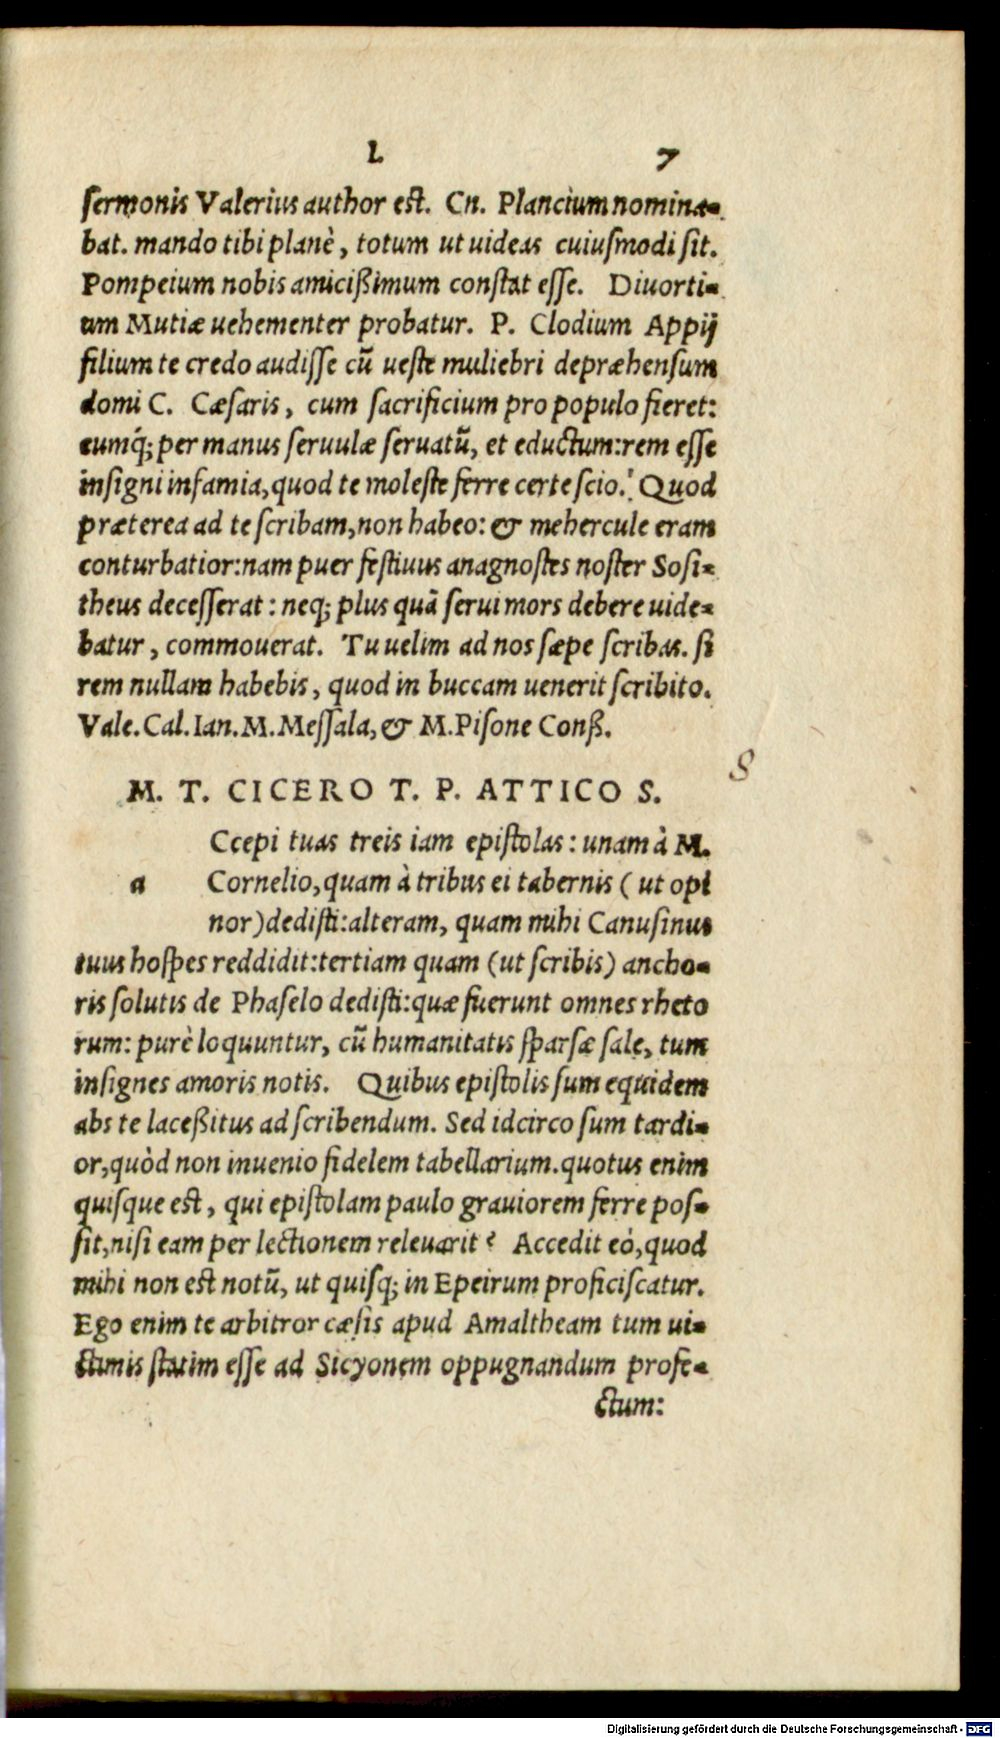 L 7
sermonis Valerius author est. Cn. Plancium nomina-
bat. mando tibi planè, totum ut uideas cuiusmodi sit.
Pompeium nobis amicißimum constat esse. Diuorti-
um Mutiæ uehementer probatur. P. Clodium Appij
filium te credo audisse cũ ueste muliebri depræhensum
domi C. Cæsaris, cum sacrificium pro populo fieret:
eumq́; per manus seruulæ seruatũ, et eductum: rem esse
insigni infamia, quod te moleste ferre certe scio. Quod
præterea ad te scribam, non habeo: & mehercule eram
conturbatior: nam puer festiuus anagnostes noster Sosi-
theus decesserat: neq; plus quã serui mors debere uide-
batur, commouerat. Tu uelim ad nos sæpe scribas. si
rem nullam habebis, quod in buccam uenerit scribito.
Vale. Cal. Ian. M. Messala, & M. Pisone Conß.
8
M. T. CICERO T. P. ATTICO S.
Ccepi tuas treis iam epistolas: unam à M.
a Cornelio, quam à tribus ei tabernis (ut opi
nor) dedisti: alteram, quam mihi Canusinus
tuus hospes reddidit: tertiam quam (ut scribis) ancho-
ris solutis de Phaselo dedisti: quæ fuerunt omnes rheto
rum: purè loquuntur, cũ humanitatis sparsæ sale, tum
insignes amoris notis. Quibus epistolis sum equidem
abs te laceßitus ad scribendum. Sed idcirco sum tardi-
or, quòd non inuenio fidelem tabellarium. quotus enim
quisque est, qui epistolam paulo grauiorem ferre pos-
sit, nisi eam per lectionem releuarit? Accedit eò, quod
mihi non est notũ, ut quisq; in Epeirum proficiscatur.
Ego enim te arbitror cæsis apud Amaltheam tum ui-
ctimis statim esse ad Sicyonem oppugnandum profe-
ctum:
Digitalisierung gefördert durch die Deutsche Forschungsgemeinschaft - DFG